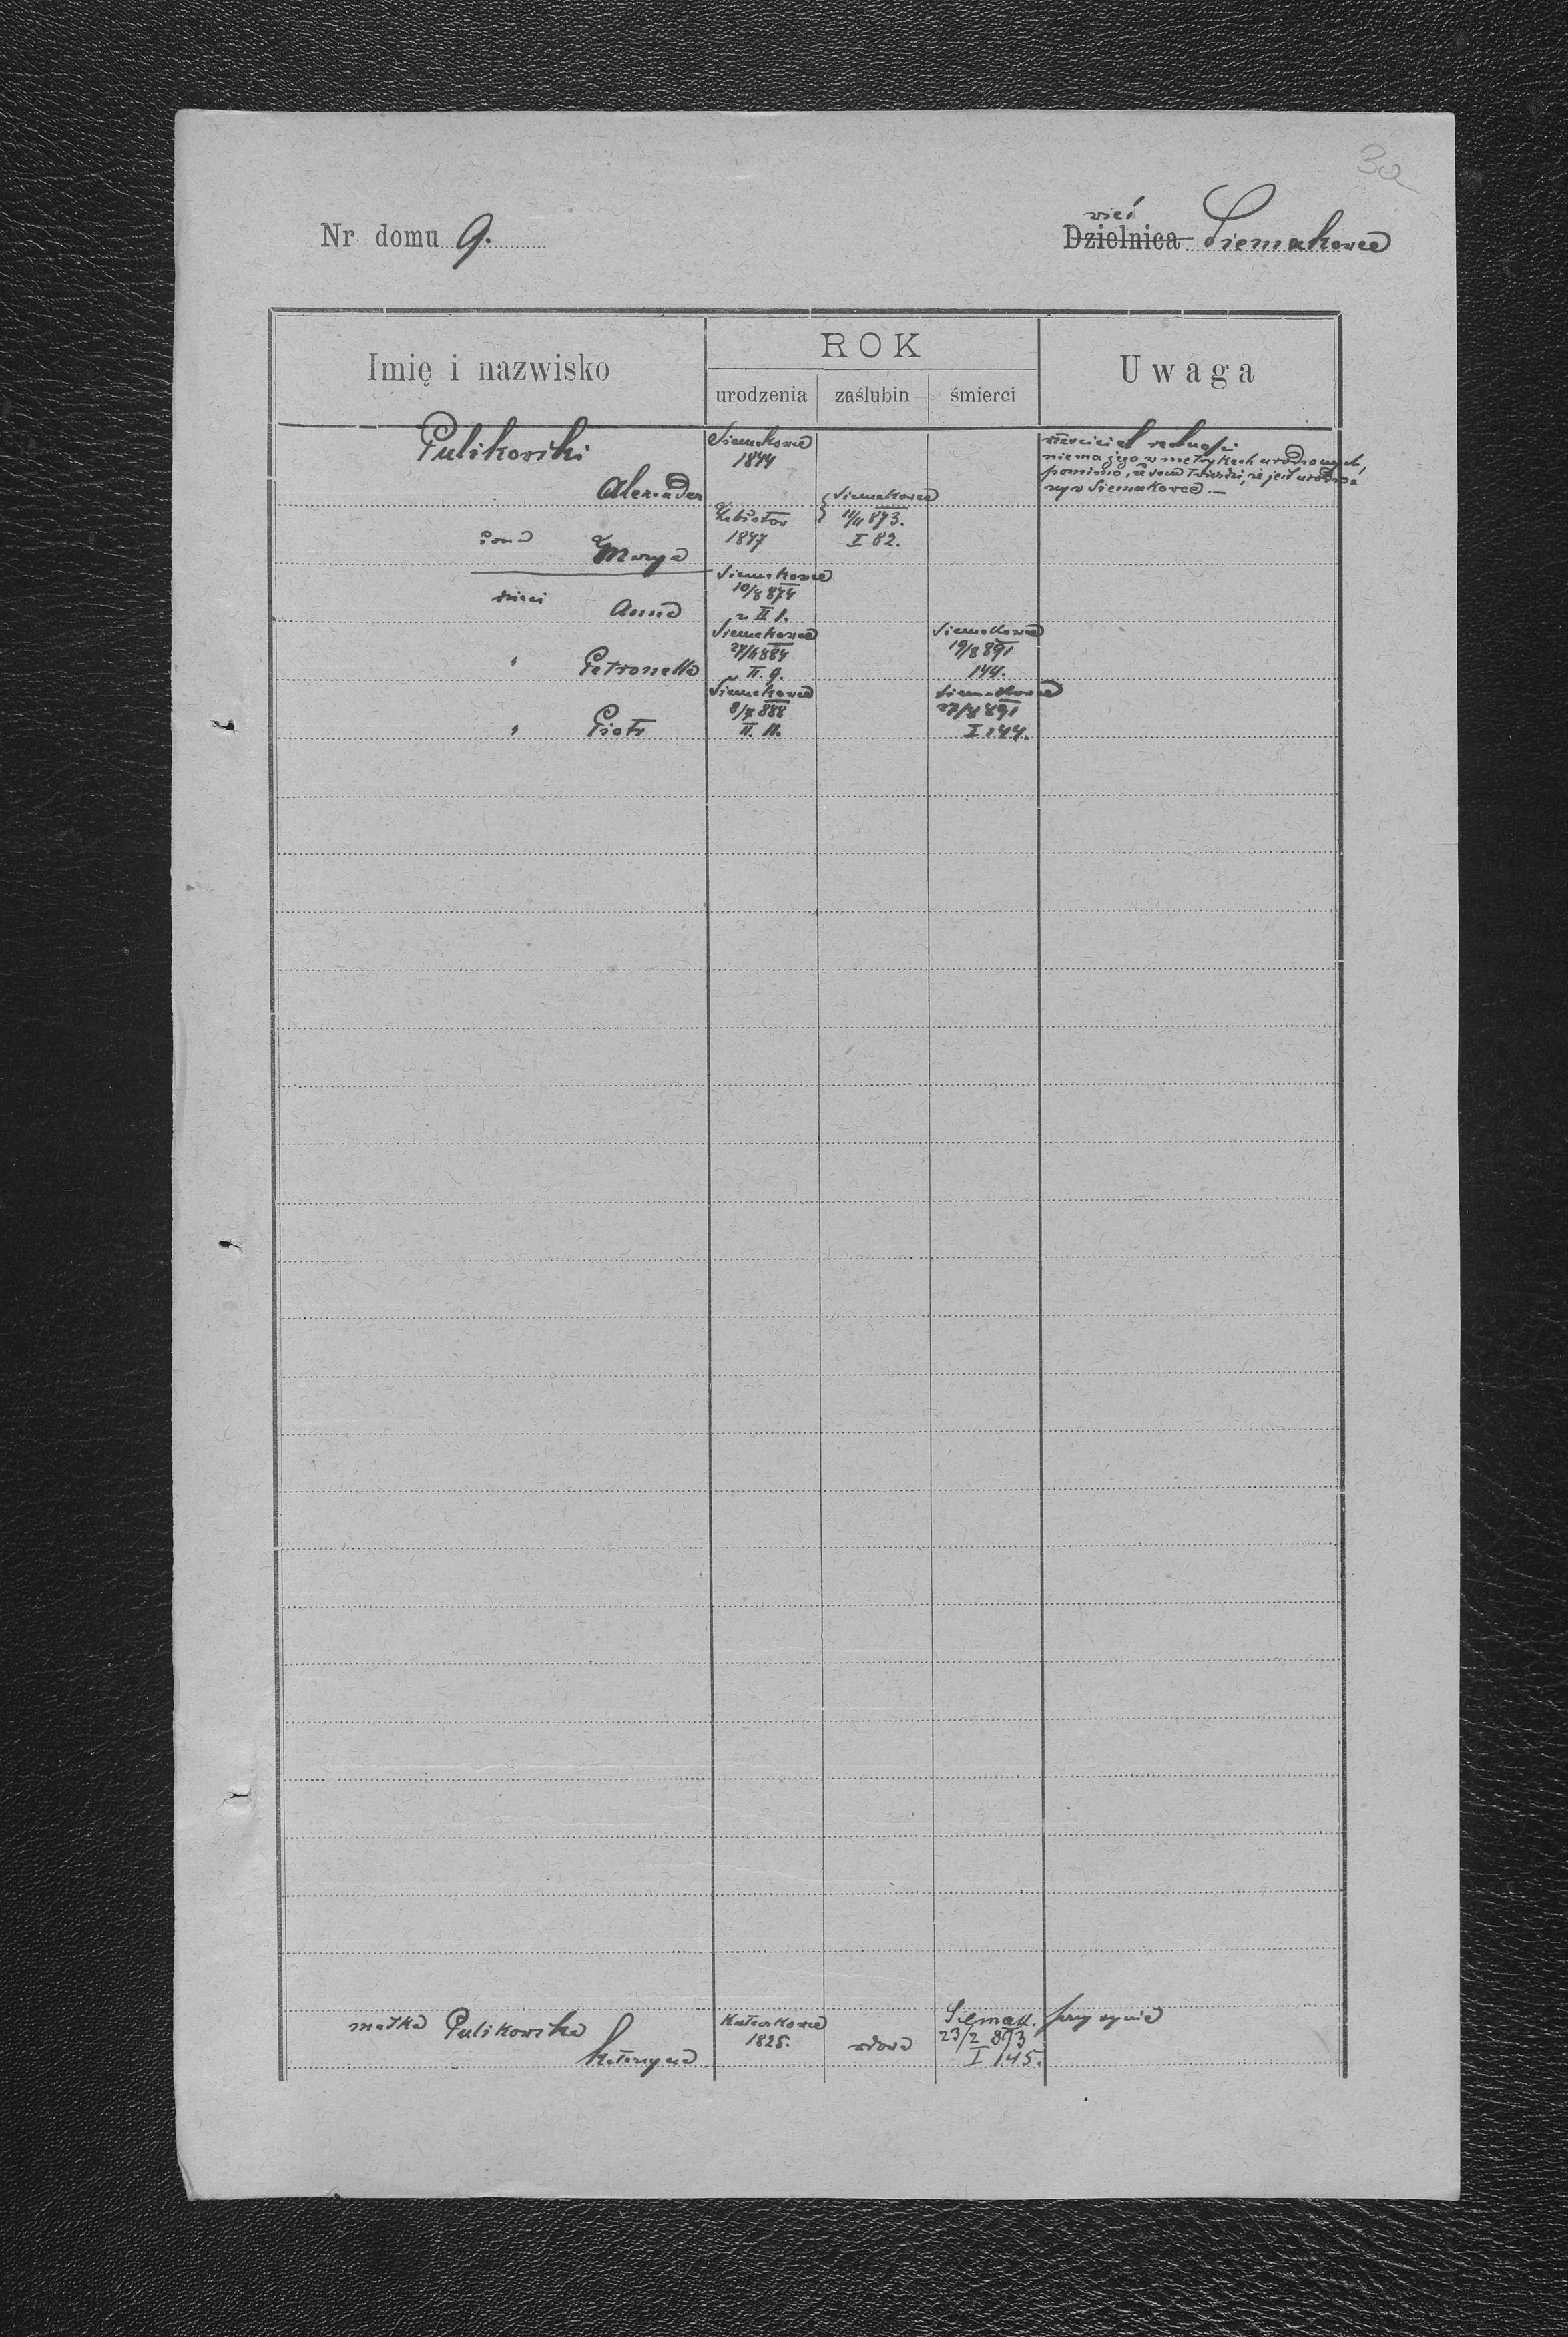 3a
Nr domu 9.
wieś
Dzielnica Siemakowce
Imię i nazwisko
ROK
urodzenia
zaślubin
śmierci
Uwaga
Pulikowski
Alexander
Siemakowce
1844
właściciel realności
niema jego w metrykach urodzonych,
pomimo, że sam twierdzi, że jest urodzo
ny w Siemakowce.—
żona
Marya
Zabłotów
1847
Siemakowce
11/11 873.
I 82.
dzieci
Anna
Siemakowce
10/8 874
II 1.
" Petronella
Siemakowce
27/4 884
II. 9.
Siemakowce
19/8 891
144.
" Piotr
Siemakowce
8/7 888
II. 11.
Siemakowce
27/8 891
I 144.
matka Pulikowska
Katarzyna
1825.
wdowa
Siemak.
23/2 893
I 145.
przy synie